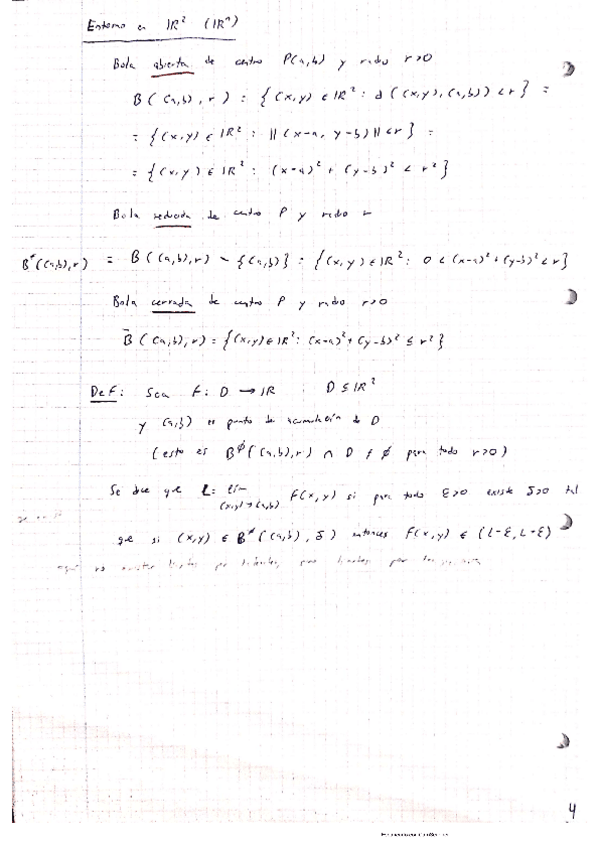 Entorno en IR² (IRⁿ)
Bola abierta de centro P(a,b) y radio r>0
B((a,b), r) = {(x,y) ∈ IR² : d((x,y),(a,b)) < r} =
= {(x,y) ∈ IR² : ||(x-a, y-b)|| < r} =
= {(x,y) ∈ IR² : (x-a)² + (y-b)² < r²}
Bola reducida de centro P y radio r
B*((a,b),r) = B((a,b),r) - {(a,b)} = {(x,y) ∈ IR² : 0 < (x-a)² + (y-b)² < r}
Bola cerrada de centro P y radio r>0
B̄((a,b), r) = {(x,y) ∈ IR² : (x-a)² + (y-b)² ≤ r²}
Def: Sea F: D → IR D ⊆ IR²
y (a,b) es punto de acumulación de D
(esto es B*((a,b),r) ∩ D ≠ ∅ para todo r>0)
Se dice que L = lím F(x,y) si para todo ε>0 existe δ>0 tal
(x,y)→(a,b)
que si (x,y) ∈ B*((a,b), δ) entonces F(x,y) ∈ (L-ε, L-ε)
aquí no existen límites por
4